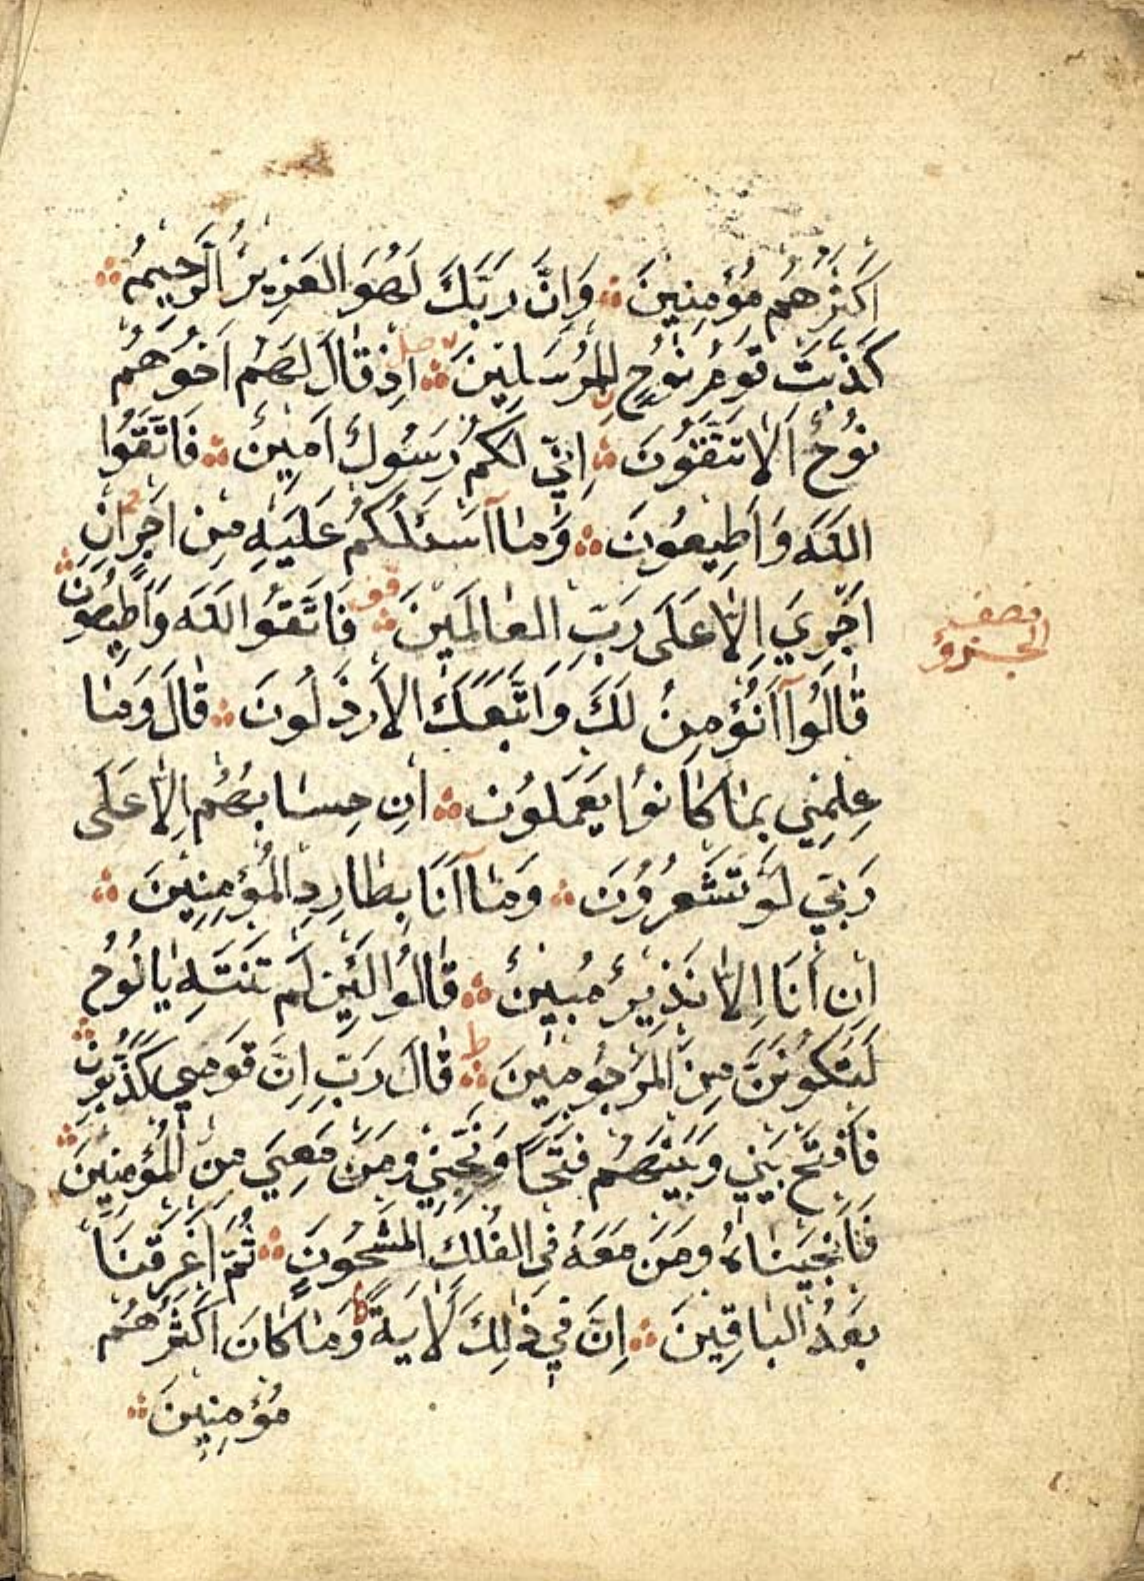 اَكْثَرُهُمْ مُؤْمِنِينَ وَاِنَّ رَبَّكَ لَهُوَ الْعَزِيزُ الرَّحِيمُ
كَذَّبَتْ قَوْمُ نُوحٍ الْمُرْسَلِينَ اِذْ قَالَ لَهُمْ اَخُوهُمْ
نُوحٌ اَلَا تَتَّقُونَ اِنِّي لَكُمْ رَسُولٌ اَمِينٌ فَاتَّقُوا
اللَّهَ وَاَطِيعُونِ وَمَا اَسْئَلُكُمْ عَلَيْهِ مِنْ اَجْرٍ اِنْ
اَجْرِيَ اِلَّا عَلَى رَبِّ الْعَالَمِينَ فَاتَّقُوا اللَّهَ وَاَطِيعُونِ
قَالُوا اَنُؤْمِنُ لَكَ وَاتَّبَعَكَ الْاَرْذَلُونَ قَالَ وَمَا
عِلْمِي بِمَا كَانُوا يَعْمَلُونَ اِنْ حِسَابُهُمْ اِلَّا عَلَى
رَبِّي لَوْ تَشْعُرُونَ وَمَا اَنَا بِطَارِدِ الْمُؤْمِنِينَ
اِنْ اَنَا اِلَّا نَذِيرٌ مُبِينٌ قَالُوا لَئِنْ لَمْ تَنْتَهِ يَا نُوحُ
لَتَكُونَنَّ مِنَ الْمَرْجُومِينَ قَالَ رَبِّ اِنَّ قَوْمِي كَذَّبُونِ
فَافْتَحْ بَيْنِي وَبَيْنَهُمْ فَتْحًا وَنَجِّنِي وَمَنْ مَعِيَ مِنَ الْمُؤْمِنِينَ
فَاَنْجَيْنَاهُ وَمَنْ مَعَهُ فِي الْفُلْكِ الْمَشْحُونِ ثُمَّ اَغْرَقْنَا
بَعْدُ الْبَاقِينَ اِنَّ فِي ذٰلِكَ لَاٰيَةً وَمَا كَانَ اَكْثَرُهُمْ
مُؤْمِنِينَ
نصف
الجزؤ